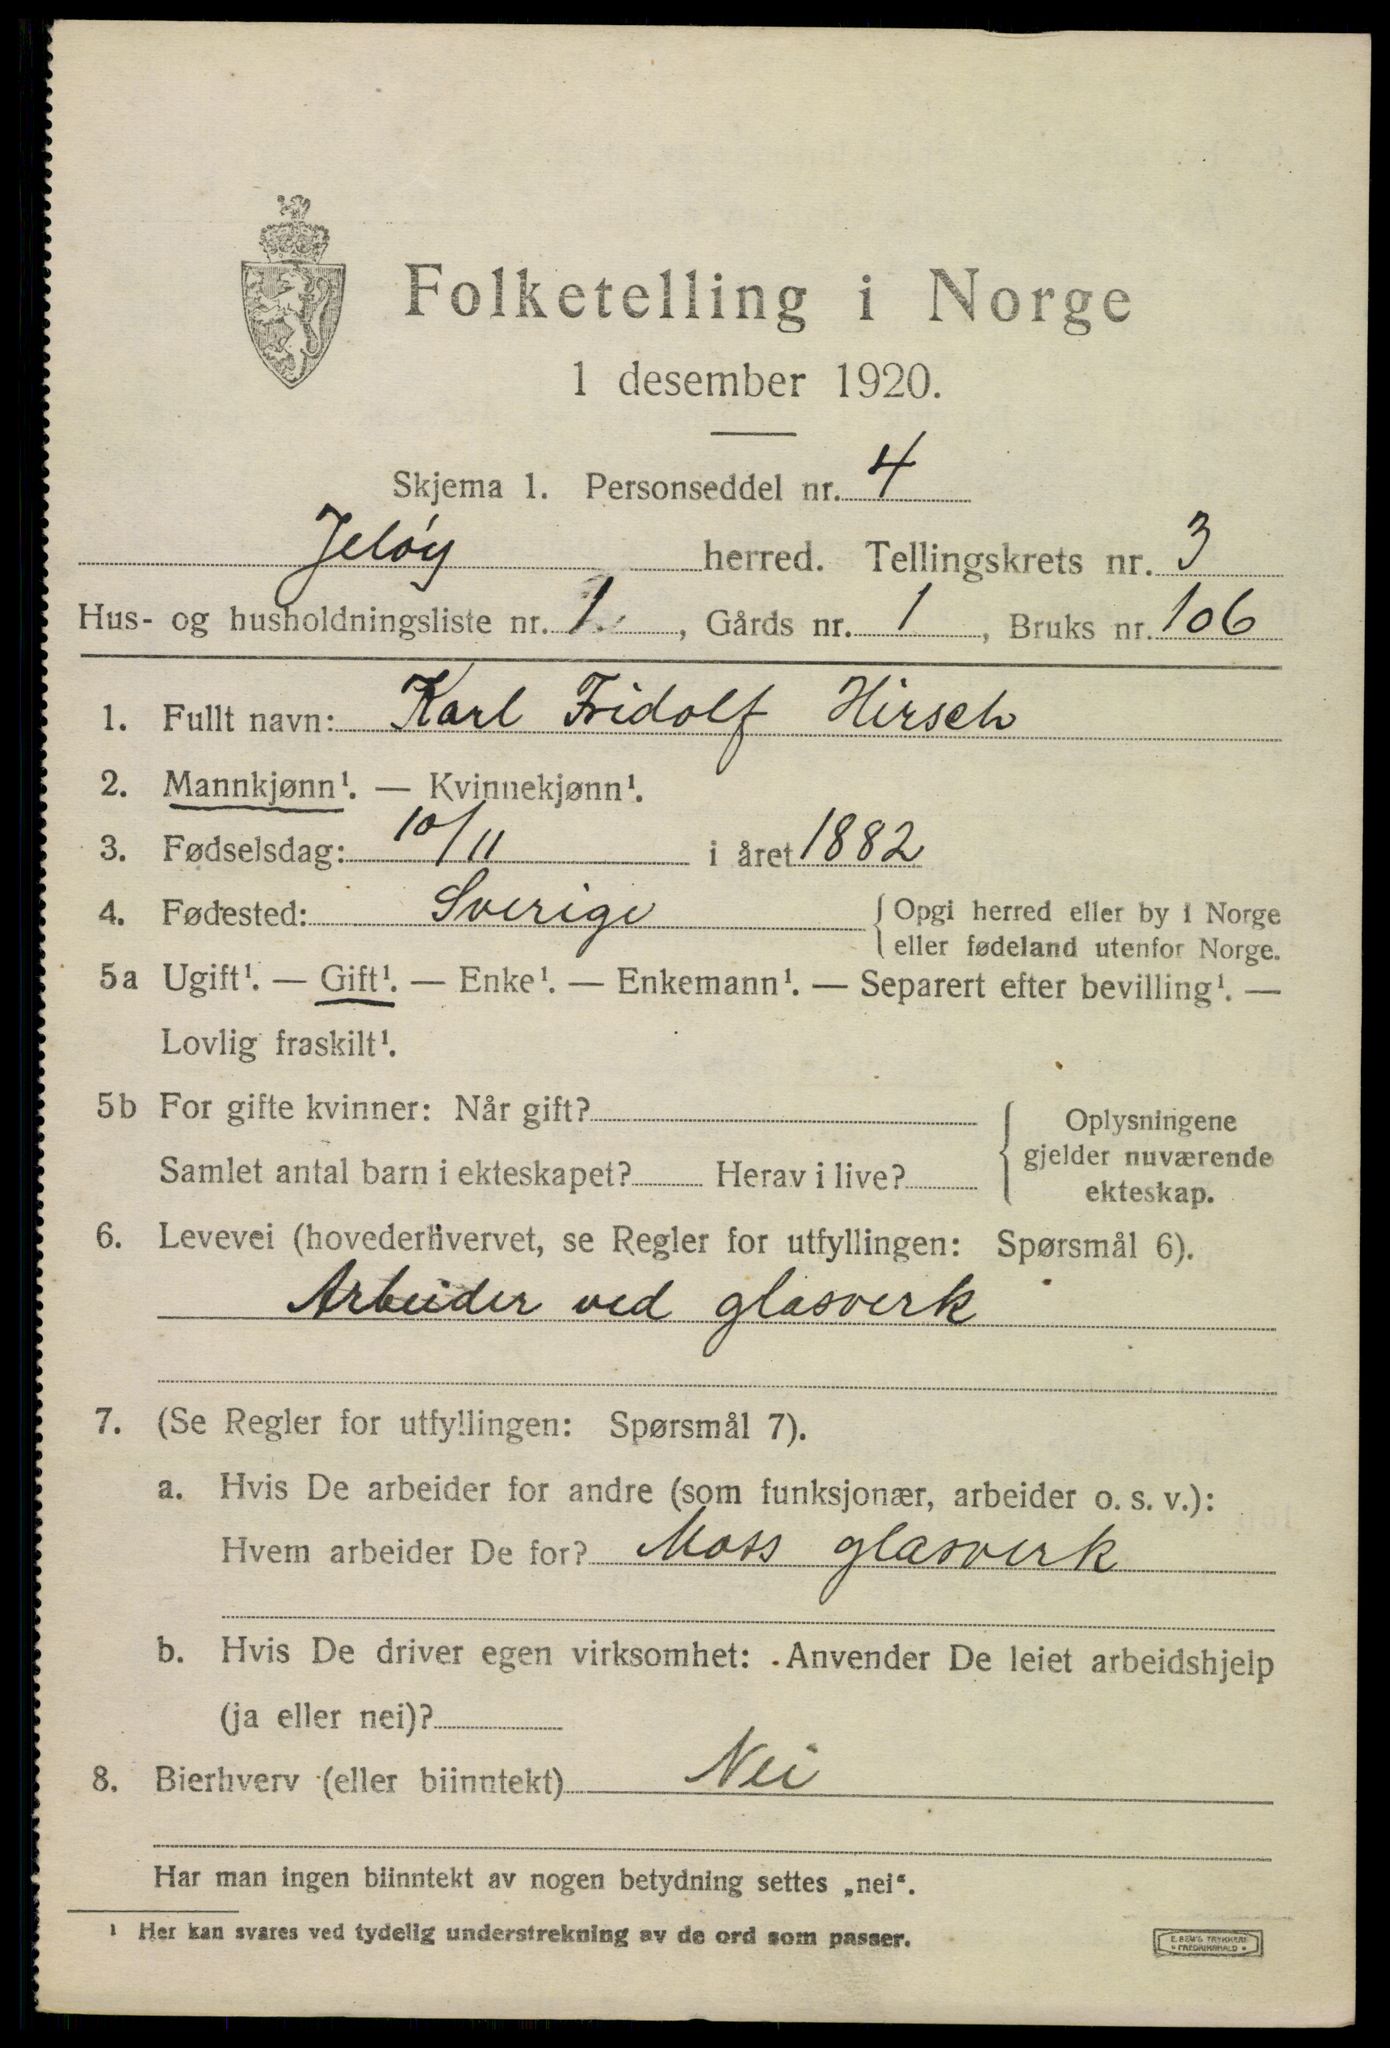 Folketelling i Norge
1 desember 1920.
Skjema 1. Personseddel nr. 4
Jeløy herred. Tellingskrets nr. 3
Hus- og husholdningsliste nr. 1, Gårds nr. 1, Bruks nr. 106
1. Fullt navn: Karl Fridolf Hirsch
2. Mannkjønn¹. — Kvinnekjønn¹.
3. Fødselsdag: 10/11 i året 1882
4. Fødested: Sverige
{ Opgi herred eller by i Norge
eller fødeland utenfor Norge.
5a Ugift¹. — Gift¹. — Enke¹. — Enkemann¹. — Separert efter bevilling¹. —
Lovlig fraskilt¹.
5b For gifte kvinner: Når gift?
Samlet antal barn i ekteskapet? Herav i live?
{ Oplysningene
gjelder nuværende
ekteskap.
6. Levevei (hovederhvervet, se Regler for utfyllingen: Spørsmål 6).
Arbeider ved glasverk
7. (Se Regler for utfyllingen: Spørsmål 7).
a. Hvis De arbeider for andre (som funksjonær, arbeider o. s. v.):
Hvem arbeider De for? Moss glasverk
b. Hvis De driver egen virksomhet: Anvender De leiet arbeidshjelp
(ja eller nei)?
8. Bierhverv (eller biinntekt) Nei
Har man ingen biinntekt av nogen betydning settes „nei“.
¹ Her kan svares ved tydelig understrekning av de ord som passer.
E. SEM'S TRYKKERI
FREDRIKSHALD